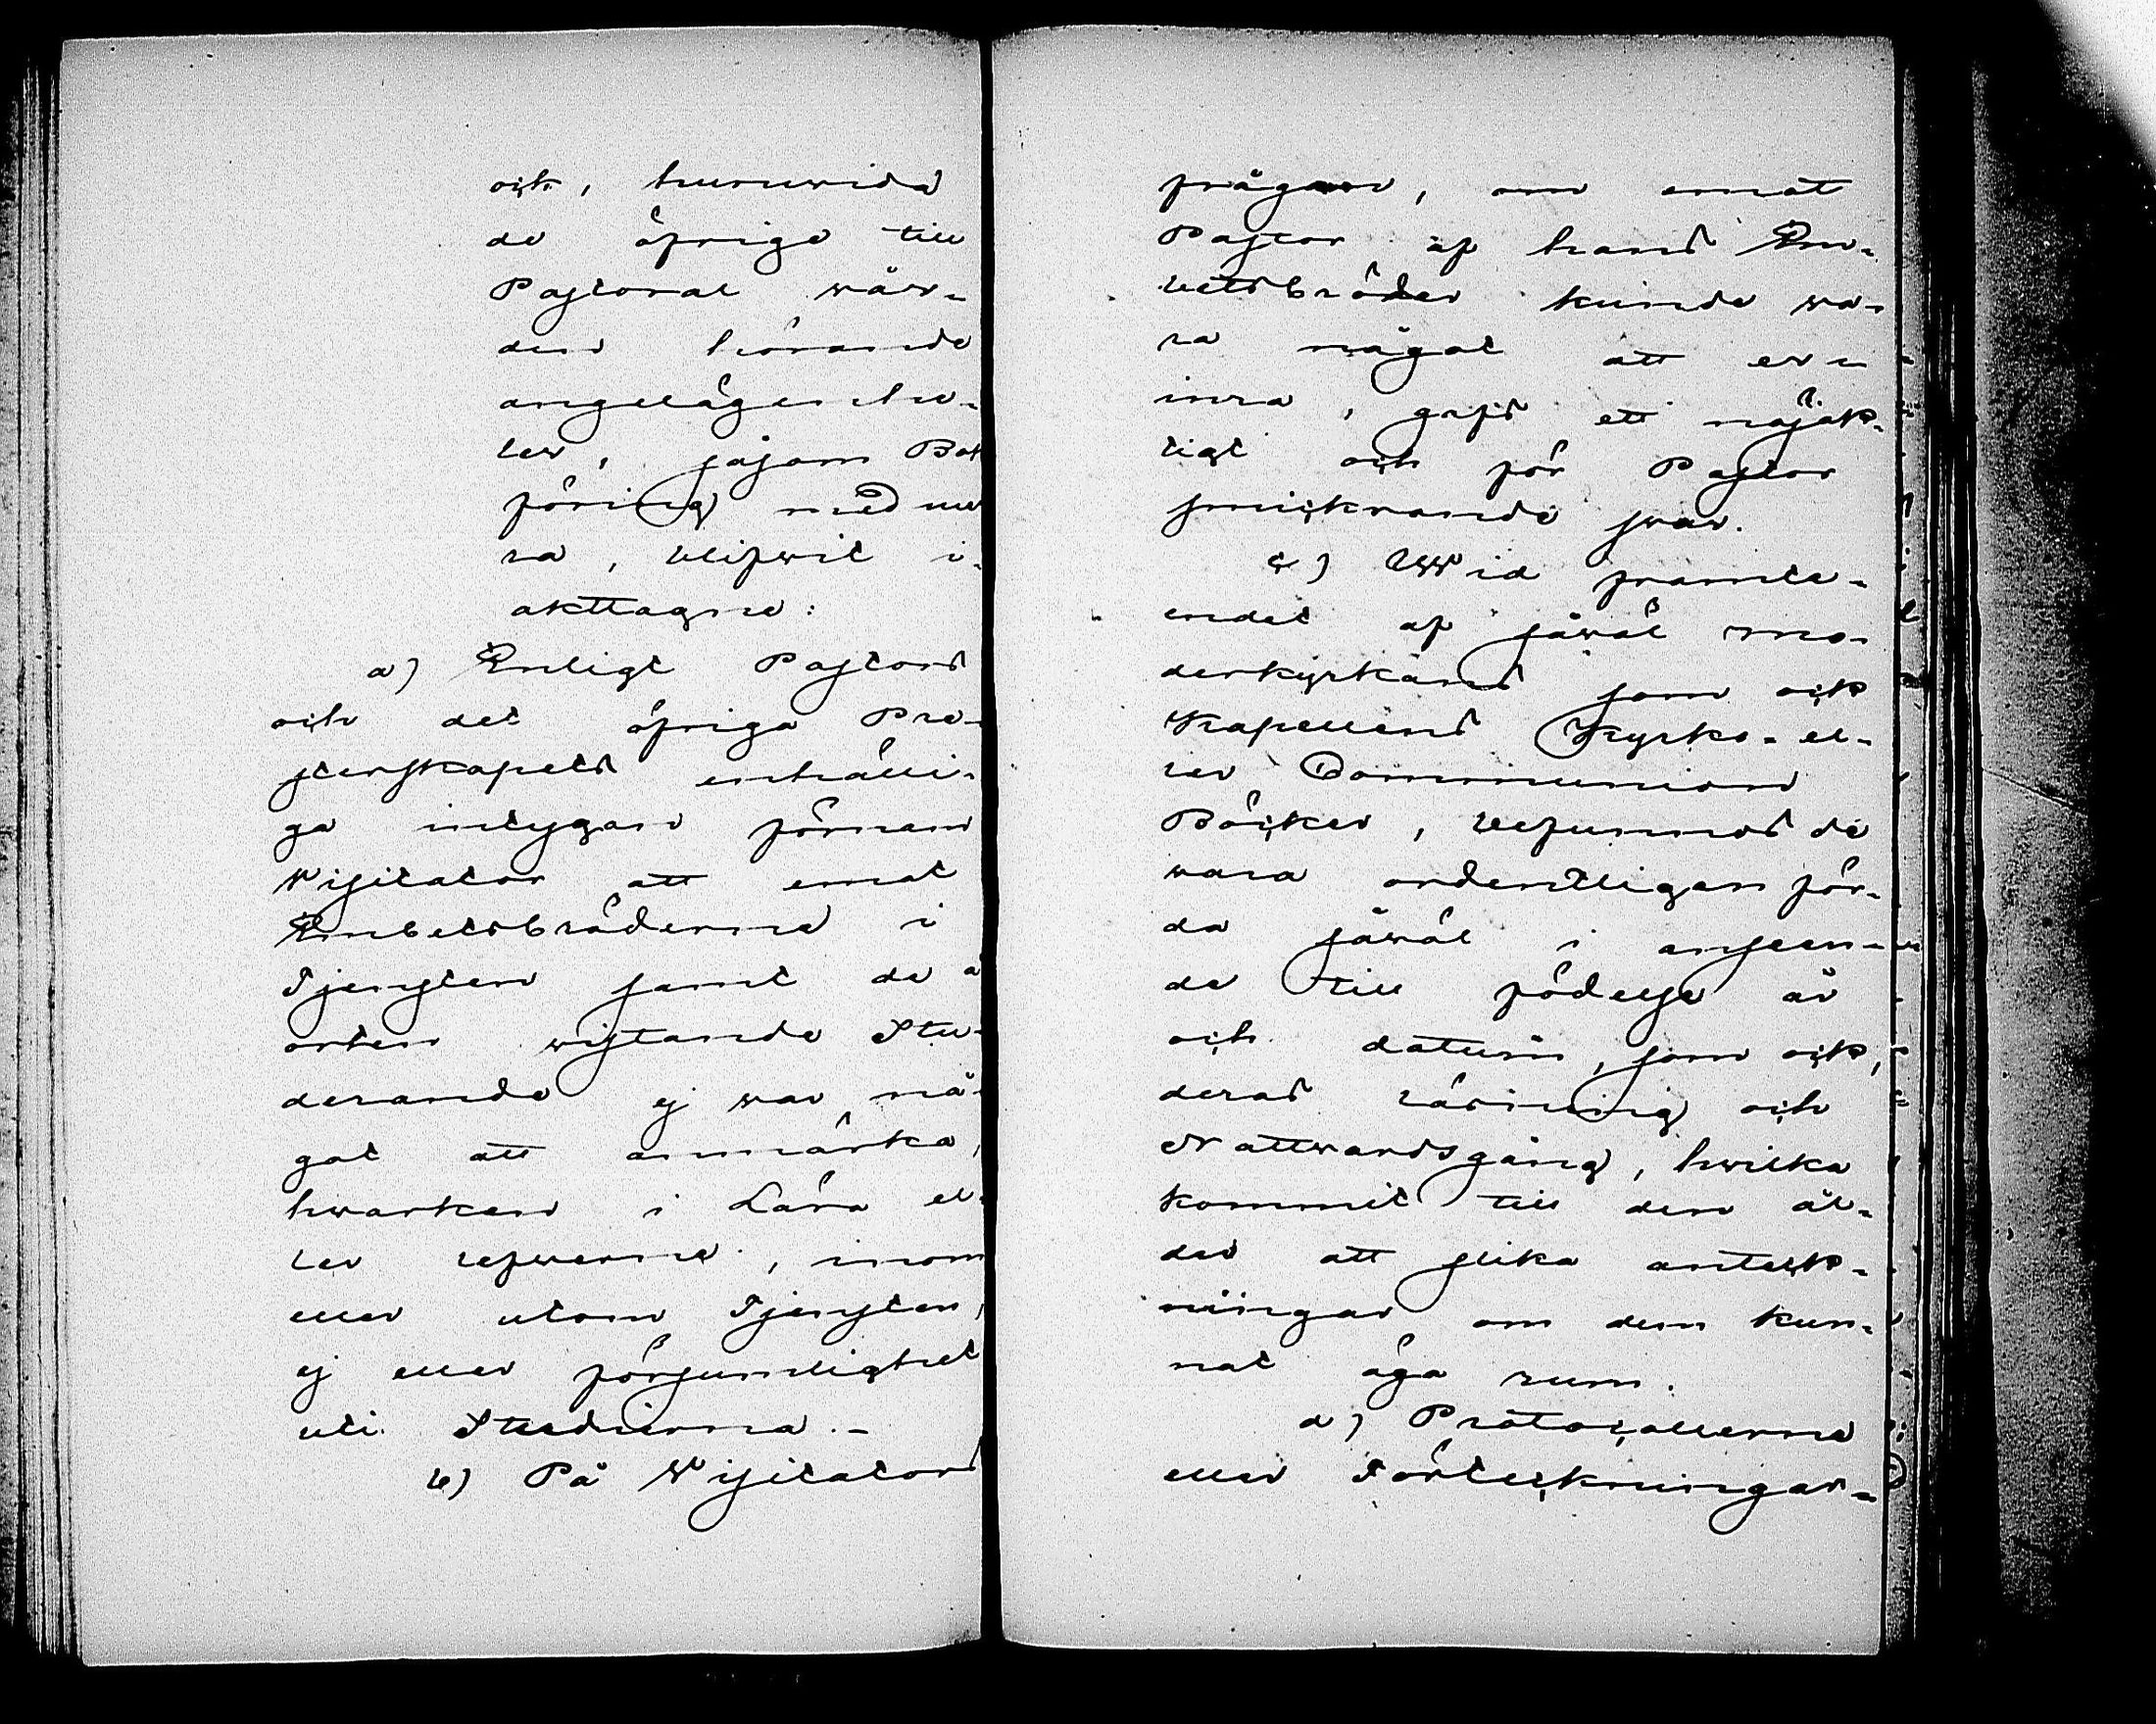 och, huruwida
de öfriga till
Pastorat wår-
den hörande
angelägenhe-
ter, såsom Bok
föring med me
ra, blifwit i-
akttagne:
a) Enligt Pastors
och det öfriga Pre-
sterskapets enhälli-
ga intygan förnam
Wisitator att emot
Embetsbröderne i
Tjensten samt de å
orten wistande Stu-
derande ej war nå-
got att anmärka,
hwarken i Lära el-
ler lefwerne, inom
eller utom Tjensten,
ej eller försumlighet
uti Studierna.-
b) På Wisitators
frågan, om emot
Pastor af hans Em-
betsbröder kunde wa-
ra något att er-
inra, gafs ett nöjak-
tigt och för Pastor
smickrande swar.
c) Wid framte-
endet af såwäl mo-
derkyrkans som ock
Kapellens Kyrko- el-
ler Communions
Böcker, befunnos de
wara ordentligen för-
da såwäl i anseen-
de till födelse år
och datum, som ock,
deras läsning och
Nattwardsgång, hwilka
kommit till den ål-
der att slika anteck-
ningar om dem kun-
nat äga rum.
d) Protocollerne
eller Förteckningar-